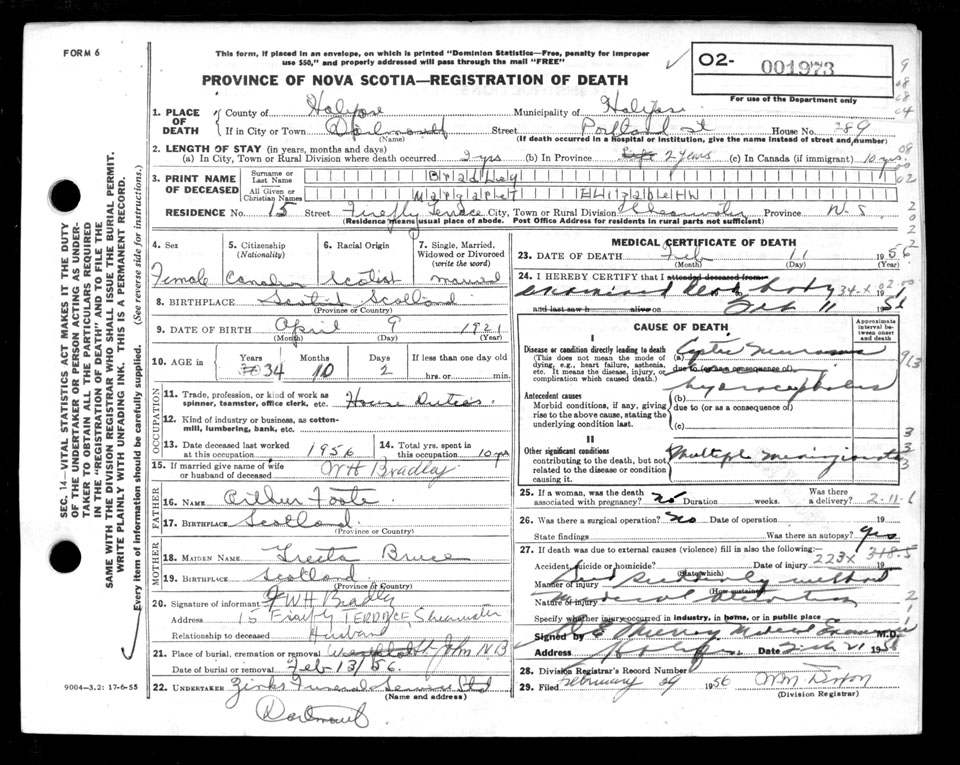 FORM 6
This form, if placed in an envelope, on which is printed "Dominion Statistics—Free, penalty for improper
use $50," and properly addressed will pass through the mail "FREE"
PROVINCE OF NOVA SCOTIA—REGISTRATION OF DEATH
02- 001973
For use of the Department only
SEC. 14—VITAL STATISTICS ACT MAKES IT THE DUTY
OF THE UNDERTAKER OR PERSON ACTING AS UNDER-
TAKER TO OBTAIN ALL THE PARTICULARS REQUIRED
IN THE "REGISTRATION OF DEATH" AND TO FILE THE
SAME WITH THE DIVISION REGISTRAR WHO SHALL ISSUE THE BURIAL PERMIT.
WRITE PLAINLY WITH UNFADING INK. THIS IS A PERMANENT RECORD.
Every item of information should be carefully supplied. (See reverse side for instructions.)
1. PLACE OF DEATH
County of Halifax Municipality of Halifax
If in City or Town Dartmouth Street Portland St House No. 289
(Name) (If death occurred in a hospital or institution, give the name instead of street and number)
2. LENGTH OF STAY (in years, months and days)
(a) In City, Town or Rural Division where death occurred 2 yrs (b) In Province 2 years (c) In Canada (if immigrant) 10 yrs
3. PRINT NAME OF DECEASED
Surname or Last Name Bradley
All Given or Christian Names Margaret Elizabeth
RESIDENCE No. 15 Street Firefly Terrace City, Town or Rural Division Shearwater Province N.S
(Residence means usual place of abode. Post Office Address for rural parts not sufficient)
4. Sex
Female
5. Citizenship (Nationality)
Canadian
6. Racial Origin
Scotish
7. Single, Married, Widowed or Divorced (write the word)
married
8. BIRTHPLACE Scotland
(Province or Country)
9. DATE OF BIRTH April 9 1921
(Month) (Day) (Year)
10. AGE in Years 34 Months 10 Days 2 If less than one day old hrs. or min.
OCCUPATION
11. Trade, profession, or kind of work as spinner, teamster, office clerk, etc. House Duties.
12. Kind of industry or business, as cotton-mill, lumbering, bank, etc.
13. Date deceased last worked at this occupation 1956
14. Total yrs. spent in this occupation 10 yrs
15. If married give name of wife or husband of deceased W H Bradley
FATHER
16. NAME Foote
17. BIRTHPLACE Scotland.
(Province or Country)
MOTHER
18. MAIDEN NAME Bruce
19. BIRTHPLACE Scotland
(Province or Country)
20. Signature of informant WH Bradley
Address 15 Firefly TERRACE Shearwater
Relationship to deceased Husband
21. Place of burial, cremation or removal John N.B
Date of burial or removal Feb 13/56.
22. UNDERTAKER Zinks Funeral Service Ltd
(Name and address)
Dartmouth
9004—3.2: 17-6-55
MEDICAL CERTIFICATE OF DEATH
23. DATE OF DEATH Feb 11 1956
(Month) (Day) (Year)
24. I HEREBY CERTIFY that I attended deceased from
examined dead body 34-x 19
and last saw h alive on Feb 11 19 56
CAUSE OF DEATH
Approximate interval between onset and death
I
Disease or condition directly leading to death
(This does not mean the mode of dying, e.g., heart failure, asthenia, etc. It means the disease, injury, or complication which caused death.)
(a)
due to (or as a consequence of)
Antecedent causes
Morbid conditions, if any, giving rise to the above cause, stating the underlying condition last.
(b) hydrocephalus
due to (or as a consequence of)
(c)
II
Other significant conditions
contributing to the death, but not related to the disease or condition causing it.
Multiple
25. If a woman, was the death associated with pregnancy? No Duration weeks. Was there a delivery? 2-11-6
26. Was there a surgical operation? No Date of operation 19
State findings Was there an autopsy? yes
27. If death was due to external causes (violence) fill in also the following: 223x 318.5
Accident, suicide or homicide? Date of injury 19
(State which)
Manner of injury died suddenly without
(How sustained)
Nature of injury medical attention
Specify whether injury occurred in industry, in home, or in public place
Signed by Murray Medical Examiner M.D.
Address Halifax Date 19 56
28. Division Registrar's Record Number
29. Filed February 29 1956 Wm Dixon
(Division Registrar)